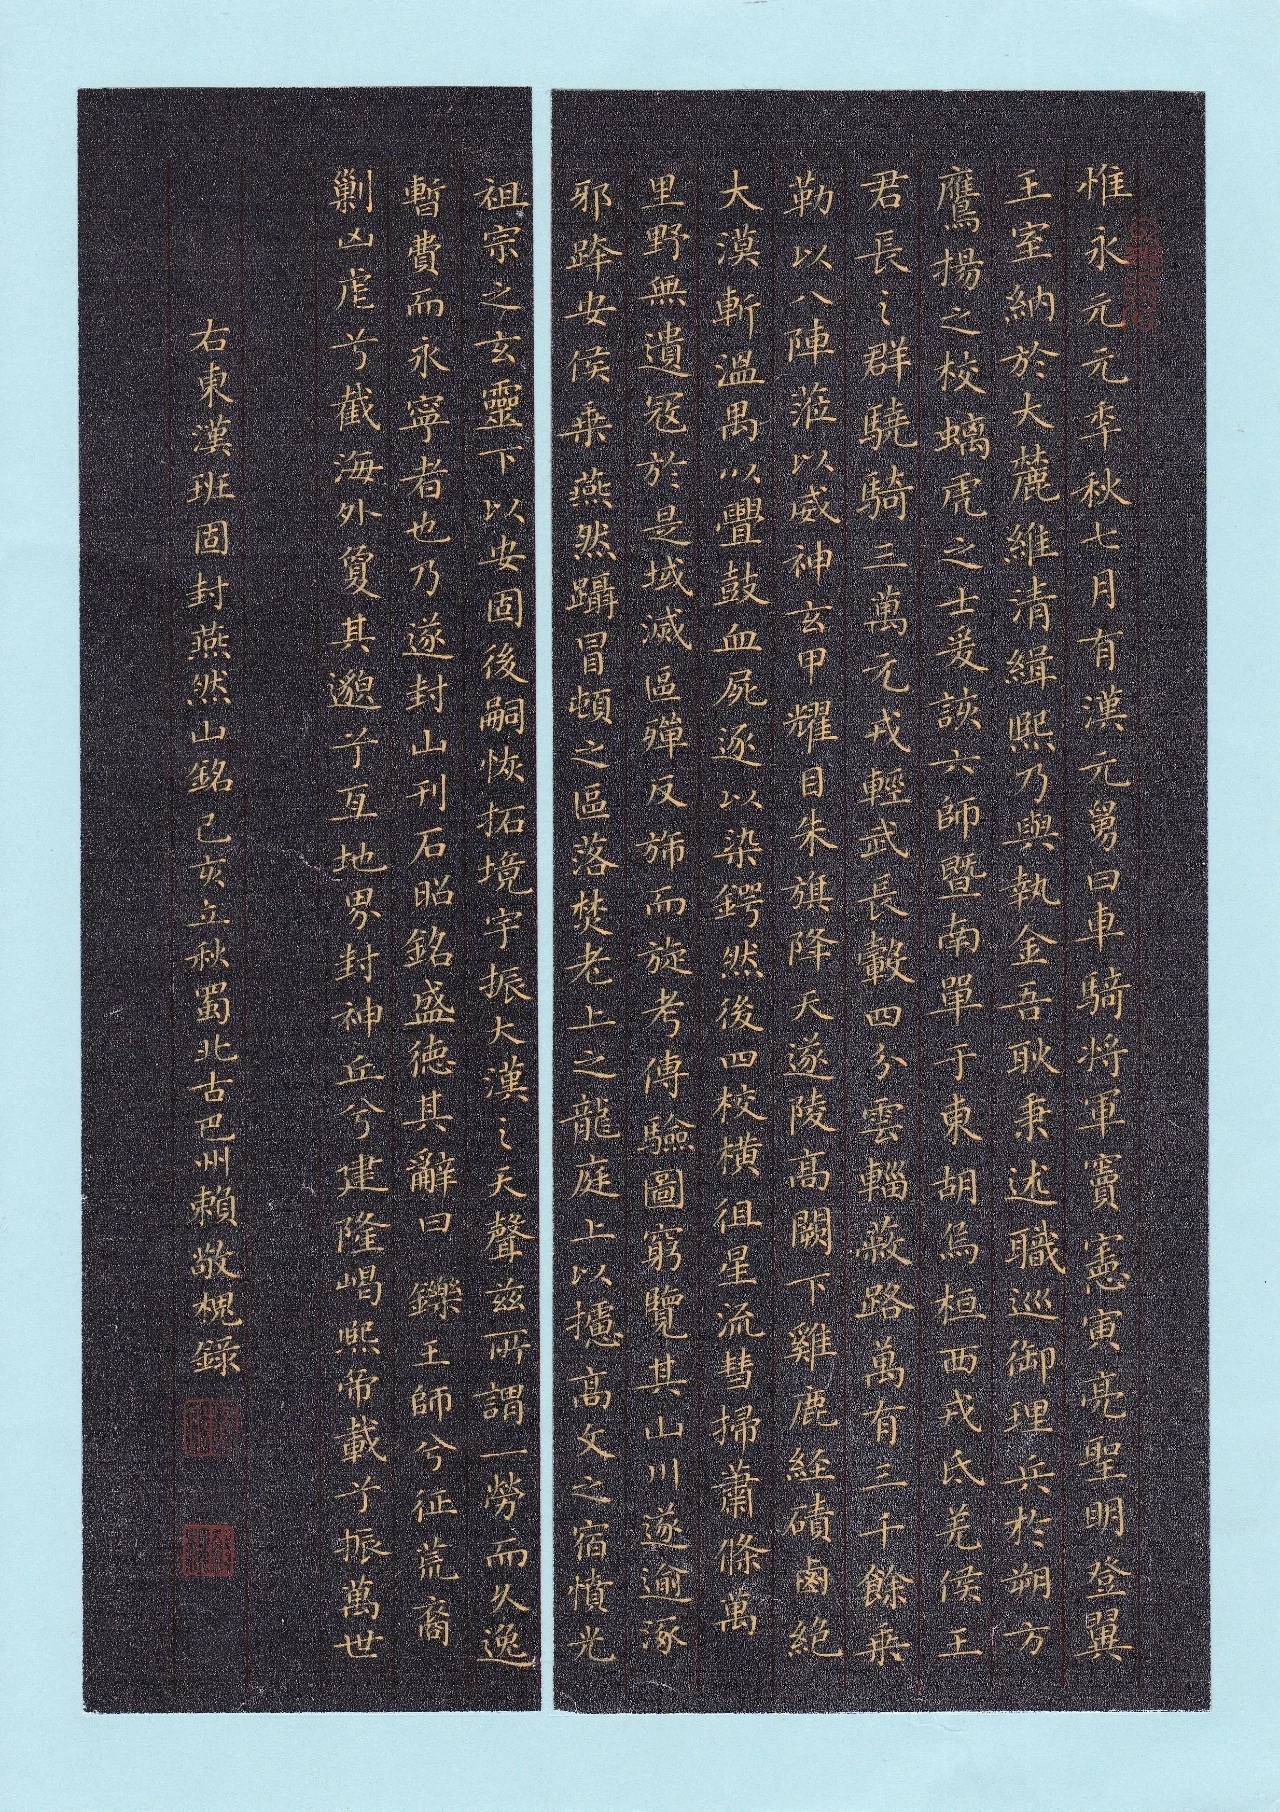 惟永元元年秋七月有漢元舅曰車騎将軍竇憲寅亮聖明登翼
王室納於大麓維清緝熙乃與執金吾耿秉述職巡御理兵於朔方
鷹揚之校螭虎之士爰該六師暨南單于東胡烏桓西戎氐羌侯王
君長之群驍騎三萬元戎輕武長轂四分雲輜蔽路萬有三千餘乗
勒以八陣蒞以威神玄甲耀目朱旗降天遂陵髙闕下雞鹿経磧鹵絶
大漠斬温禺以釁鼓血屍逐以染鍔然後四校横徂星流彗掃蕭條萬
里野無遺冦於是域滅區殫反斾而旋考傳驗圖窮覽其山川遂逾涿
邪跨安侯乗燕然躡冒頓之區落焚老上之龍庭上以攄髙文之宿憤光
祖宗之玄靈下以安固後嗣恢拓境宇振大漢之天聲兹所謂一勞而久逸
暫費而永寧者也乃遂封山刊石昭銘盛徳其辭曰 鑠王師兮征荒裔
剿凶虐兮截海外夐其邈兮亙地界封神丘兮建隆嵑熙帝載兮振萬世
右東漢班固封燕然山銘己亥立秋蜀北古巴州賴敬槐錄